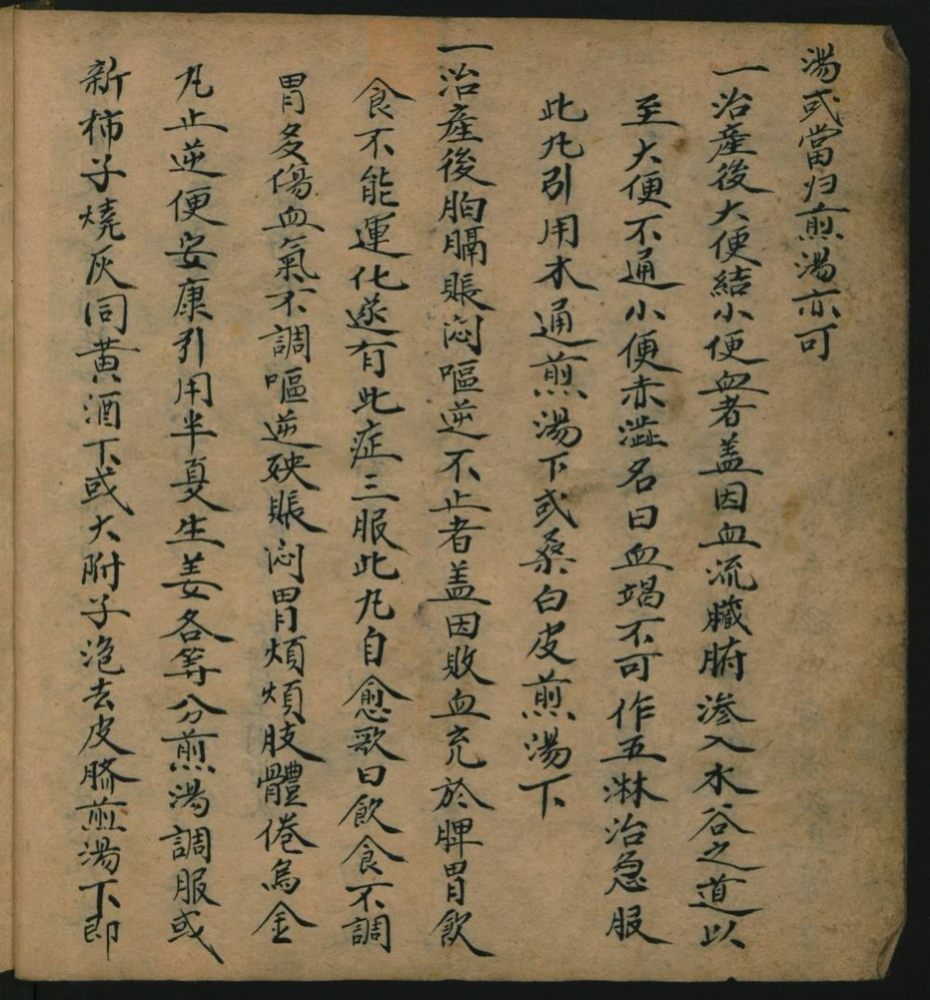 湯或當归煎湯亦可
一治產後大便結小便血者盖因血流臟腑滲入水谷之道以
至大便不通小便赤澁名曰血竭不可作五淋治急服
此九引用木通煎湯下或桑白皮煎湯下
一治產後胸膈賬闷嘔逆不止者盖因敗血充於脾胃飲
食不能運化遂有此症三服此九自愈歌曰飲食不調
胃多傷血氣不調嘔逆殃賬闷胃煩煩肢體倦烏金
九止逆便安康引用半夏生姜各等分煎湯調服或
新柿子燒灰同黄酒下或大附子泡去皮臍煎湯下即